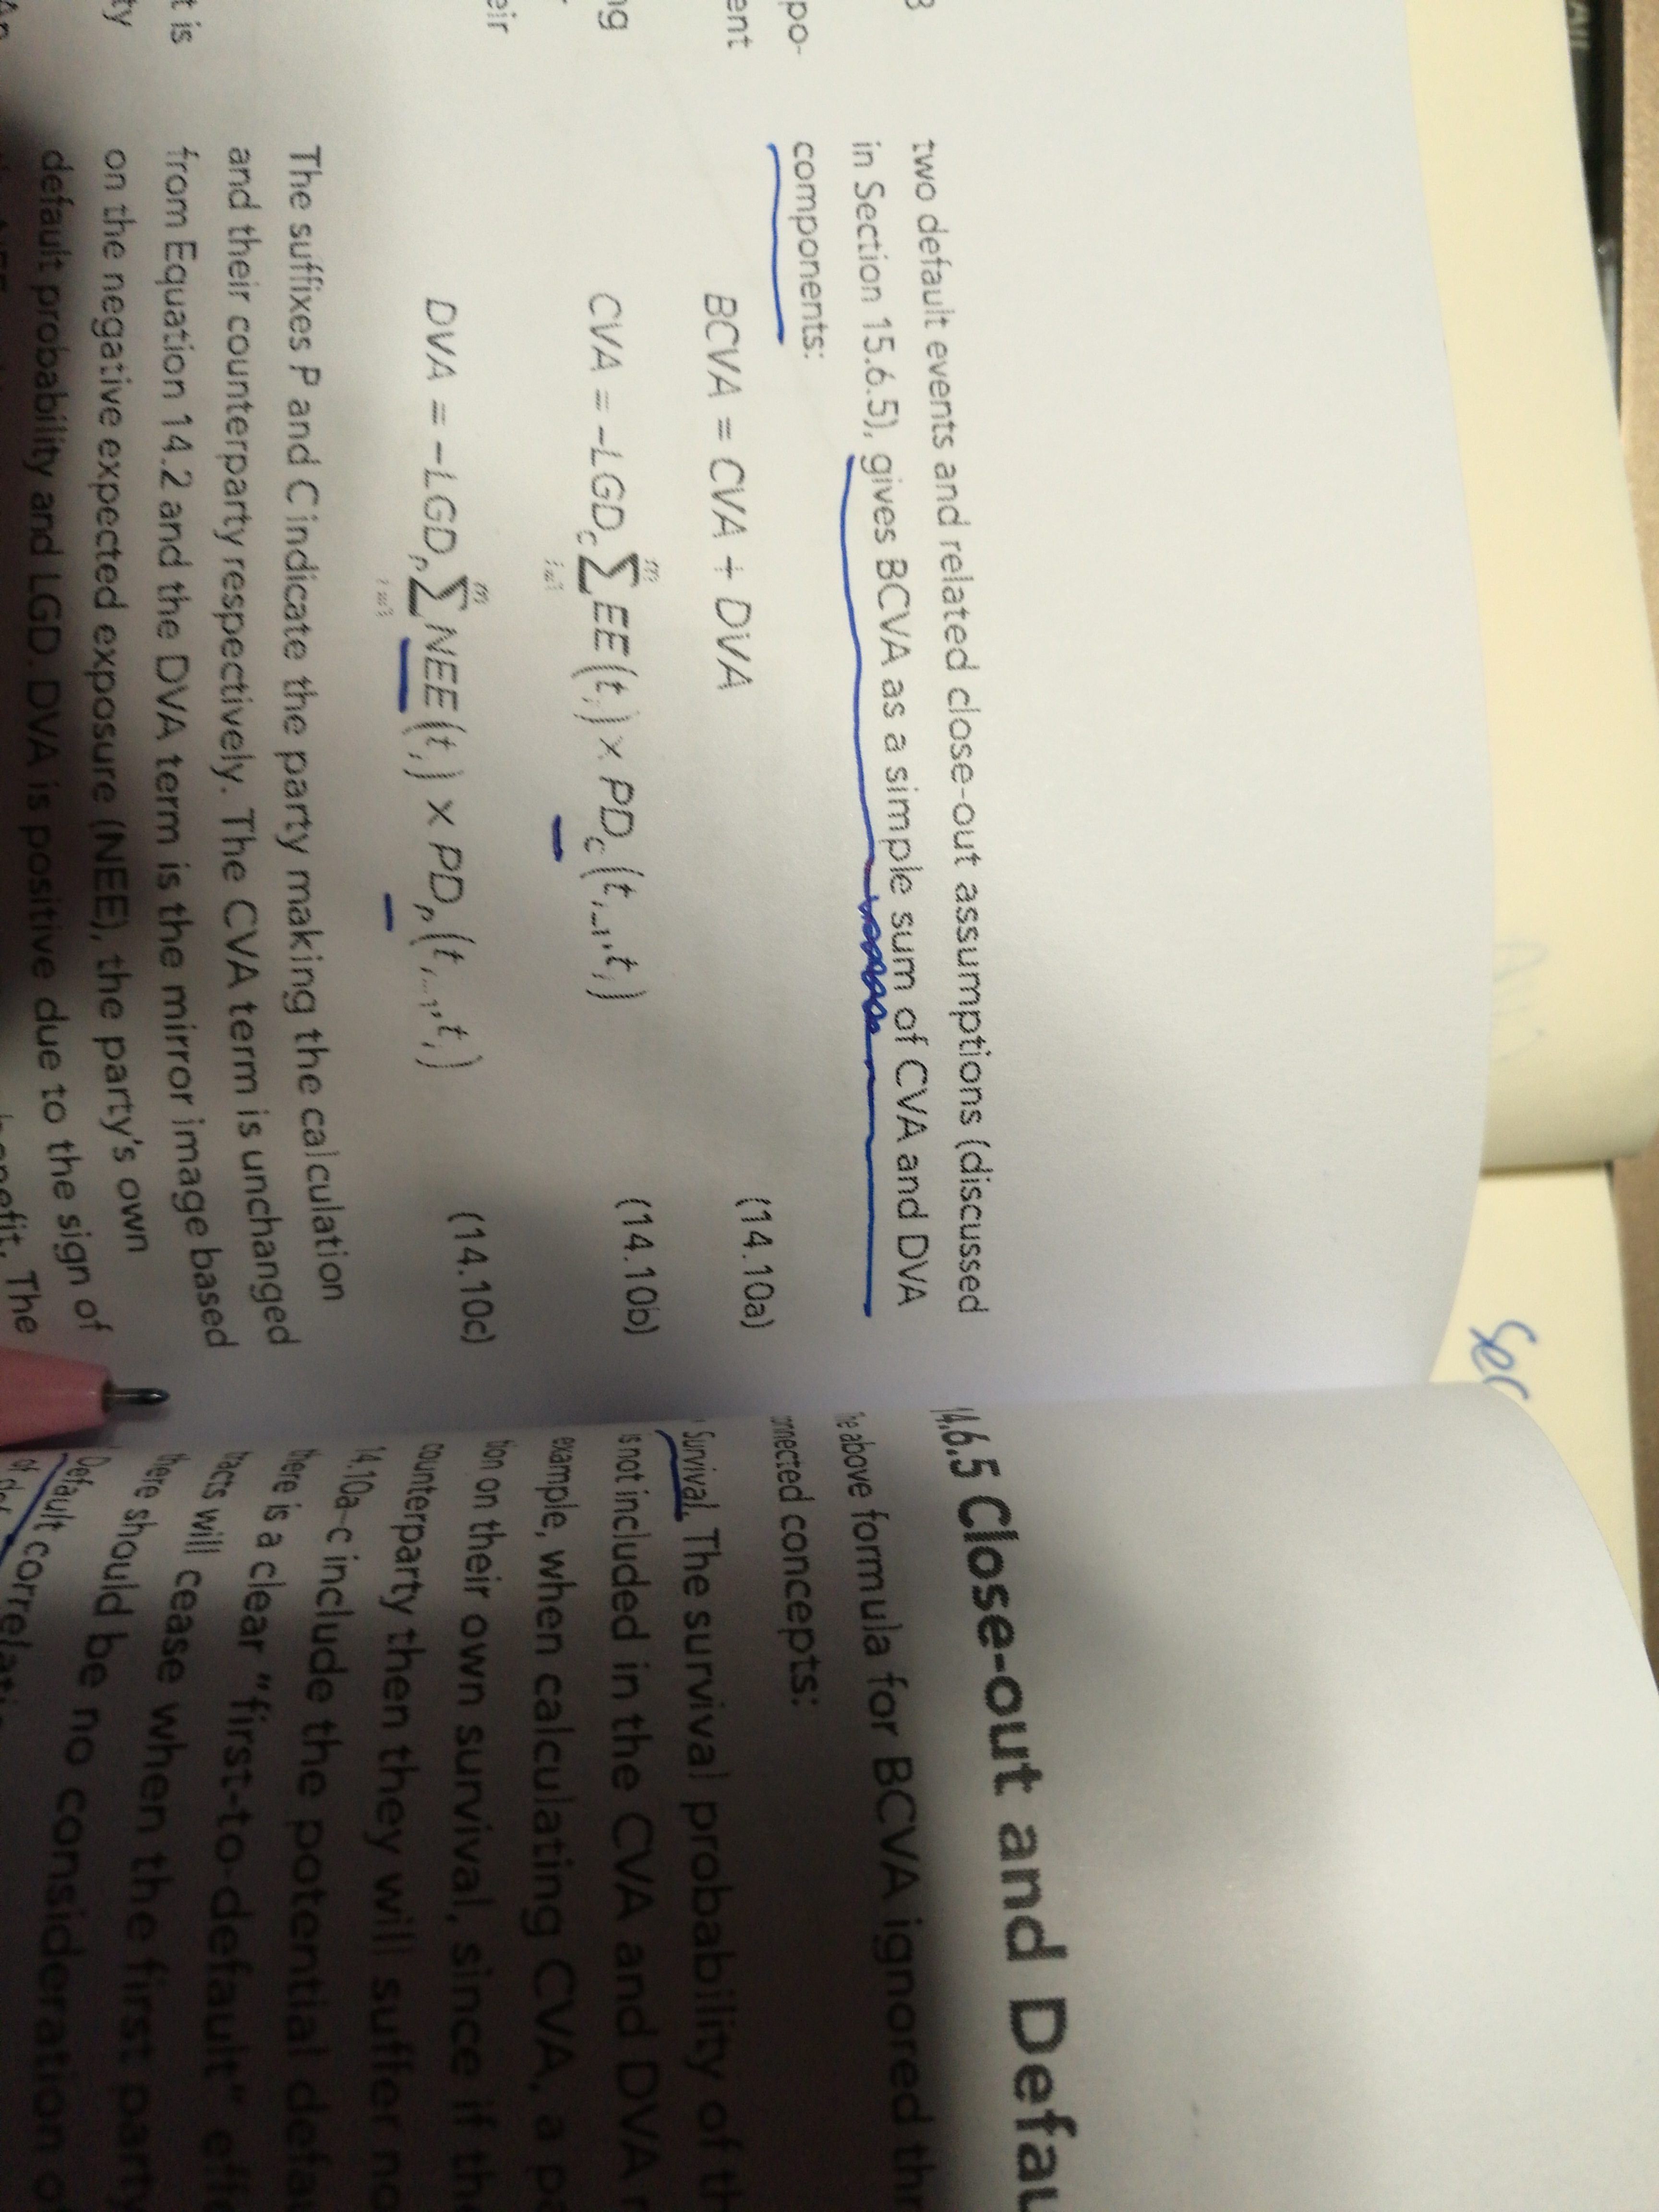 two default events and related close-out assumptions (discussed
in Section 15.6.5), gives BCVA as a simple sum of CVA and DVA
components:
BCVA = CVA + DVA (14.10a)
CVA = -LGD_C ∑_{i=1}^{m} EE(t_i) × PD_C(t_{i-1}, t_i) (14.10b)
DVA = -LGD_P ∑_{i=1}^{m} NEE(t_i) × PD_P(t_{i-1}, t_i) (14.10c)
The suffixes P and C indicate the party making the calculation
and their counterparty respectively. The CVA term is unchanged
from Equation 14.2 and the DVA term is the mirror image based
on the negative expected exposure (NEE), the party's own
default probability and LGD. DVA is positive due to the sign of
benefit. The
14.6.5 Close-out and Defau
he above formula for BCVA ignored thr
onnected concepts:
Survival. The survival probability of th
is not included in the CVA and DVA
example, when calculating CVA, a pa
tion on their own survival, since if the
counterparty then they will suffer no
14.10a–c include the potential defau
there is a clear "first-to-default" effe
tracts will cease when the first party
there should be no consideration of
Default
po-
ent
ng
eir
t is
ty
Sec